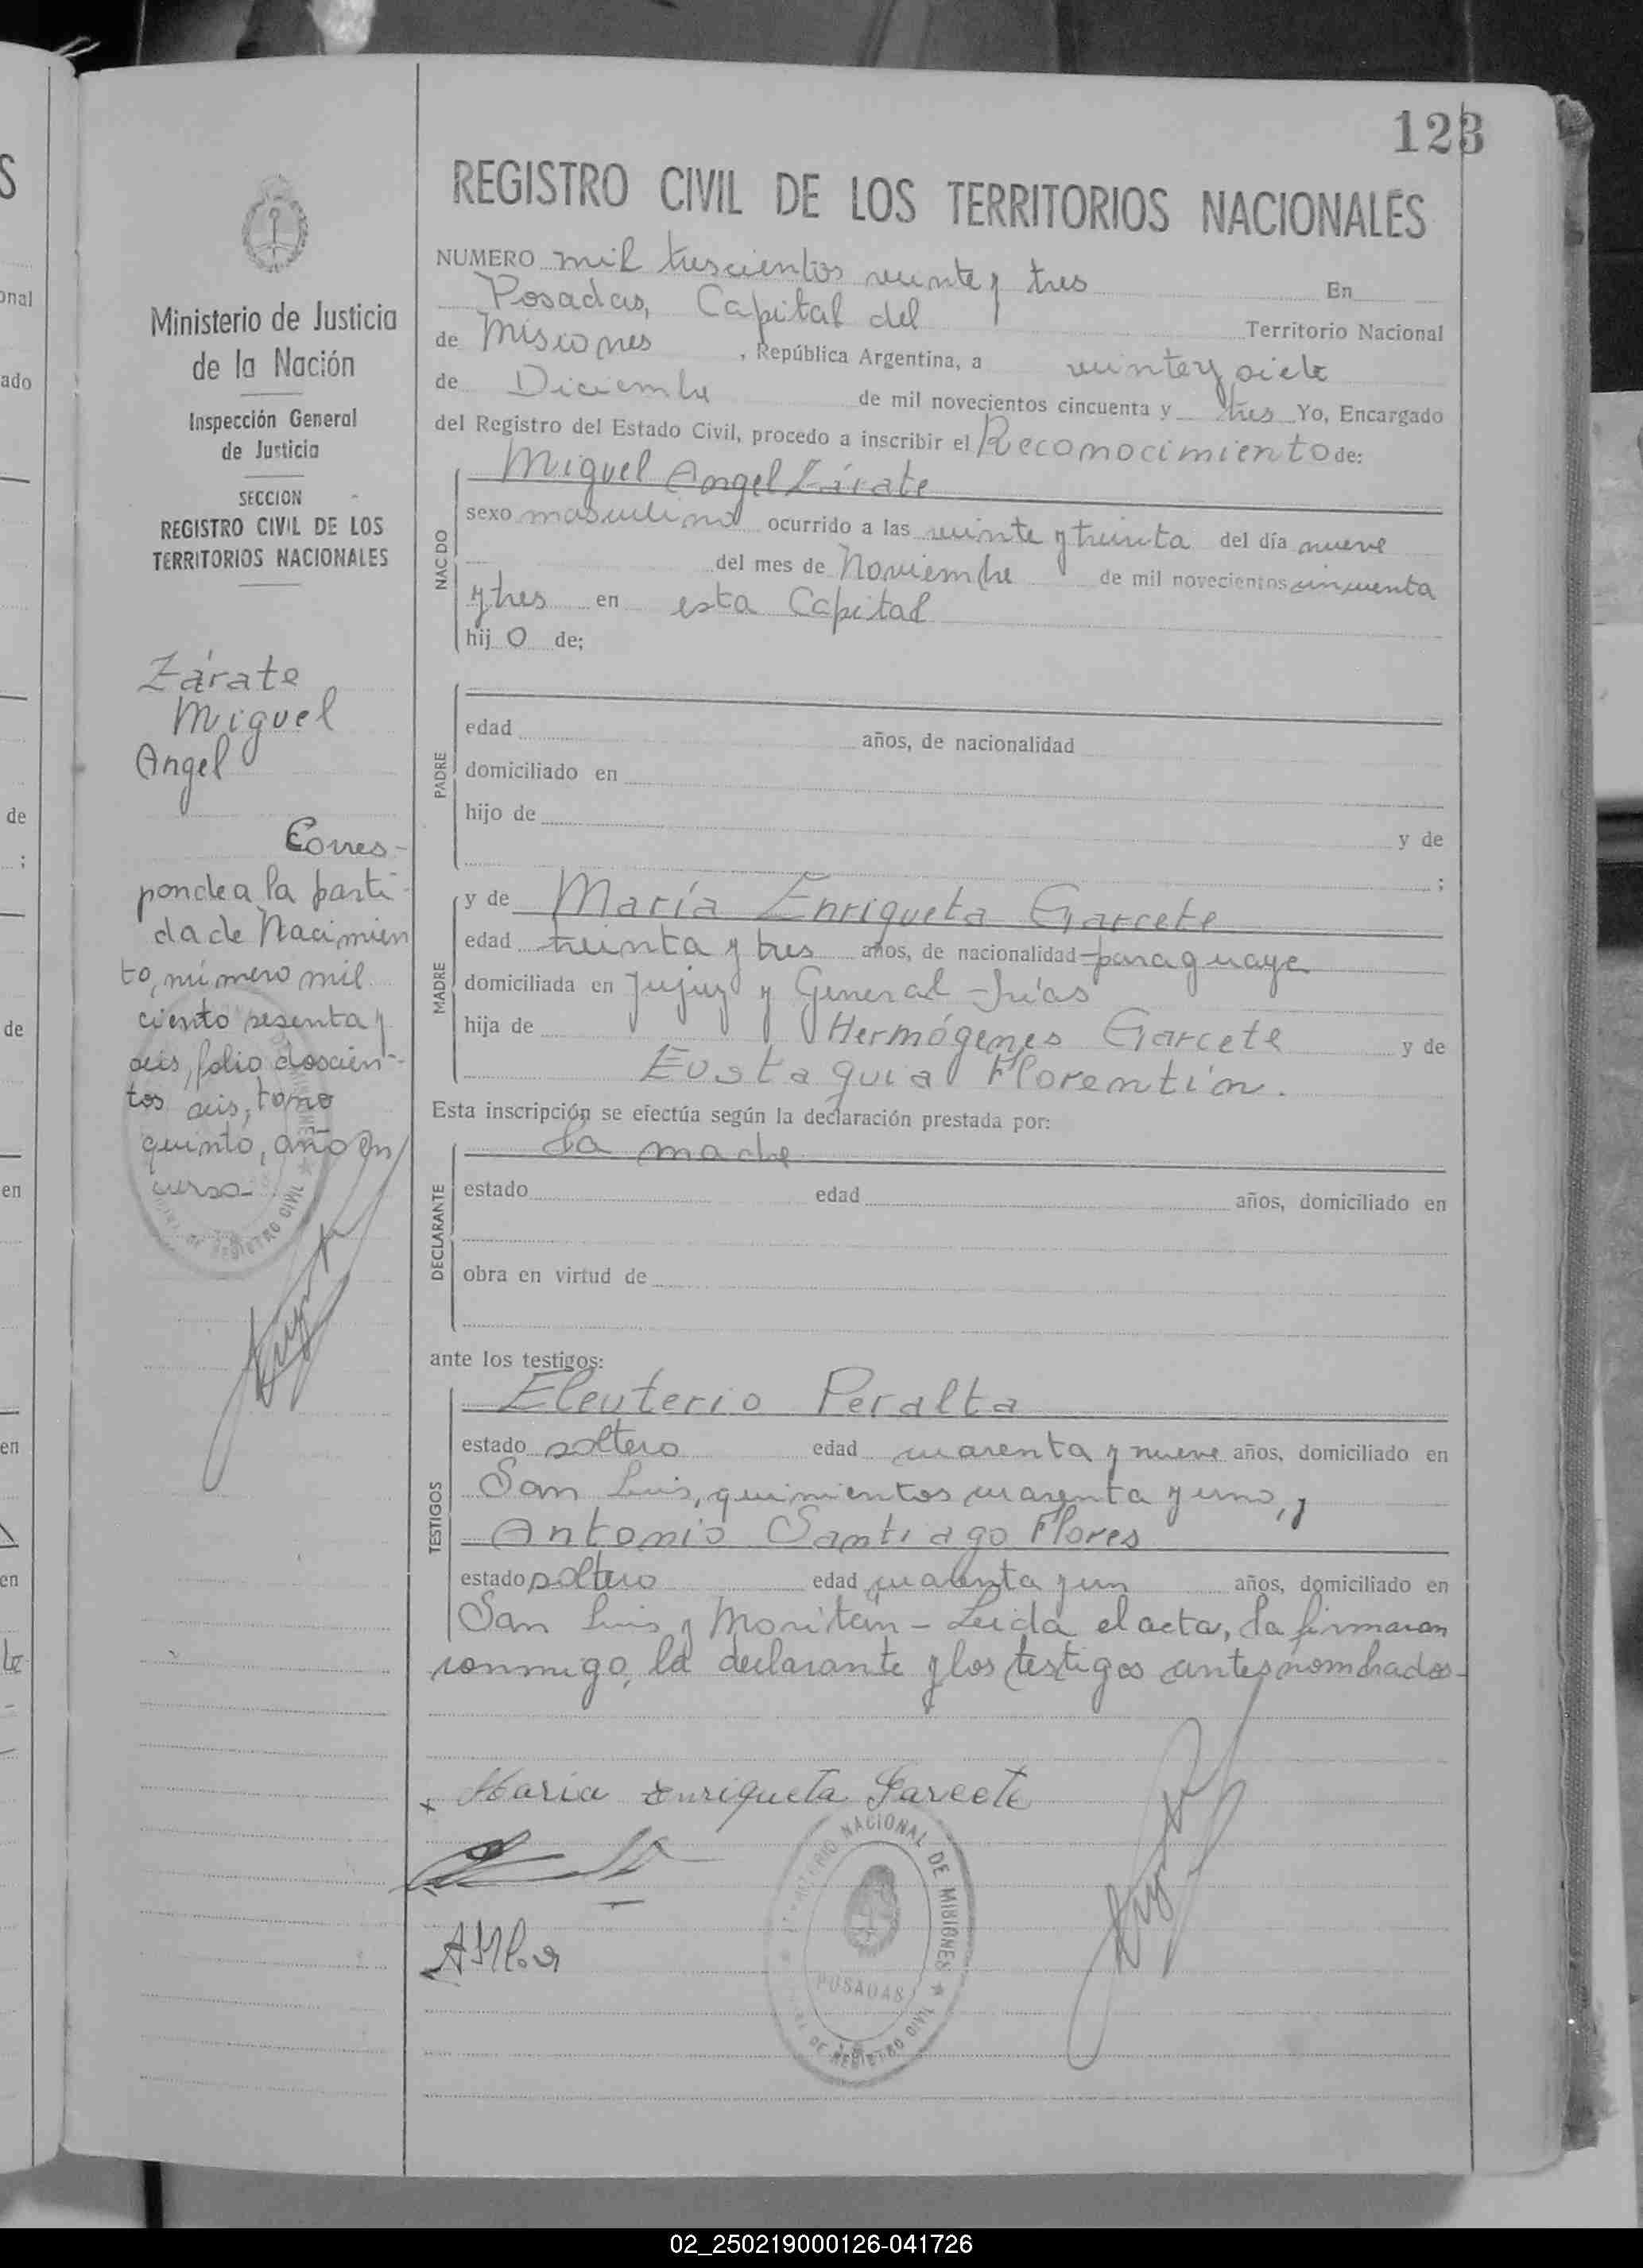 123
REGISTRO CIVIL DE LOS TERRITORIOS NACIONALES
Ministerio de Justicia
de la Nación
Inspección General
de Justicia
SECCION
REGISTRO CIVIL DE LOS
TERRITORIOS NACIONALES
Zárate
Miguel
Angel
Corres-
ponde a la parti-
da de Nacimien
to, número mil
ciento sesenta y
seis, folio doscien-
tos seis, tomo
quinto, año en
curso-
NUMERO mil trescientos veinte y tres En
Posadas, Capital del Territorio Nacional
de Misiones, República Argentina, a veinte y siete
de Diciembre de mil novecientos cincuenta y tres Yo, Encargado
del Registro del Estado Civil, procedo a inscribir el Reconocimiento de:
Miguel Angel Zárate
NACIDO
sexo masculino ocurrido a las veinte y treinta del día nueve
del mes de Noviembre de mil novecientos cincuenta
y tres en esta Capital
hijo de;
PADRE
edad años, de nacionalidad
domiciliado en
hijo de y de
;
MADRE
y de María Enriqueta Garcete
edad treinta y tres años, de nacionalidad paraguaya
domiciliada en Jujuy y General Frías
hija de Hermógenes Garcete y de
Eustaquia Florentín.
Esta inscripción se efectúa según la declaración prestada por:
la madre
DECLARANTE
estado edad años, domiciliado en
obra en virtud de
ante los testigos:
TESTIGOS
Eleuterio Peralta
estado soltero edad cuarenta y nueve años, domiciliado en
San Luis, quinientos cuarenta y uno, y
Antonio Santiago Flores
estado soltero edad cuarenta y un años, domiciliado en
San Luis y Moritán - Leida el acta, la firmaron
conmigo, la declarante y los testigos antes nombrados-
x María Enriqueta Garcete
TERRITORIO NACIONAL DE MISIONES
POSADAS
DE REGISTRO CIVIL
02_250219000126-041726